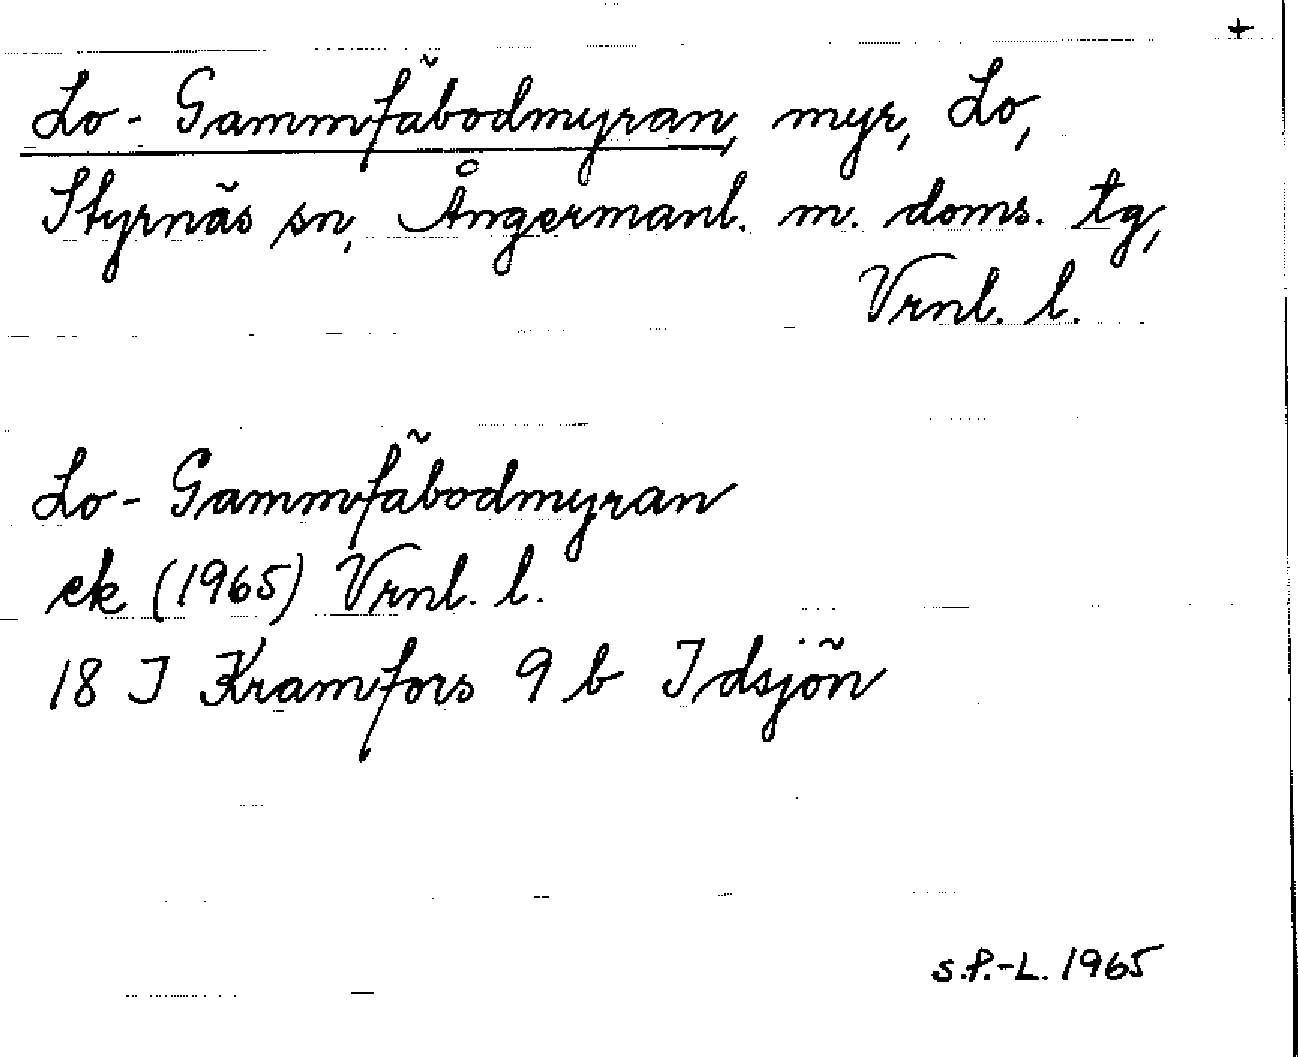 +
Lo-Gammfäbodmyran, myr, Lo,
Styrnäs sn, Ångermanl. m. doms. tg,
Vrnl. l.
Lo-Gammfäbodmyran
ek (1965) Vrnl. l.
18 I Kramfors 9 b Idsjön
S.P.-L. 1965